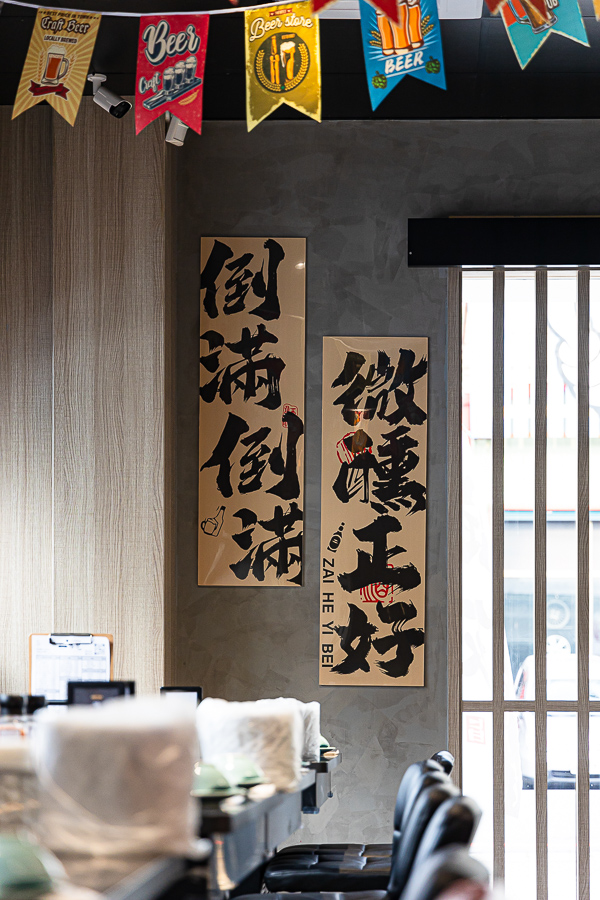 Craft Beer
LOCALLY BREWED
Beer
Craft
Beer store
BEER
倒滿倒滿
微醺正好
ZAI HE YI BEI